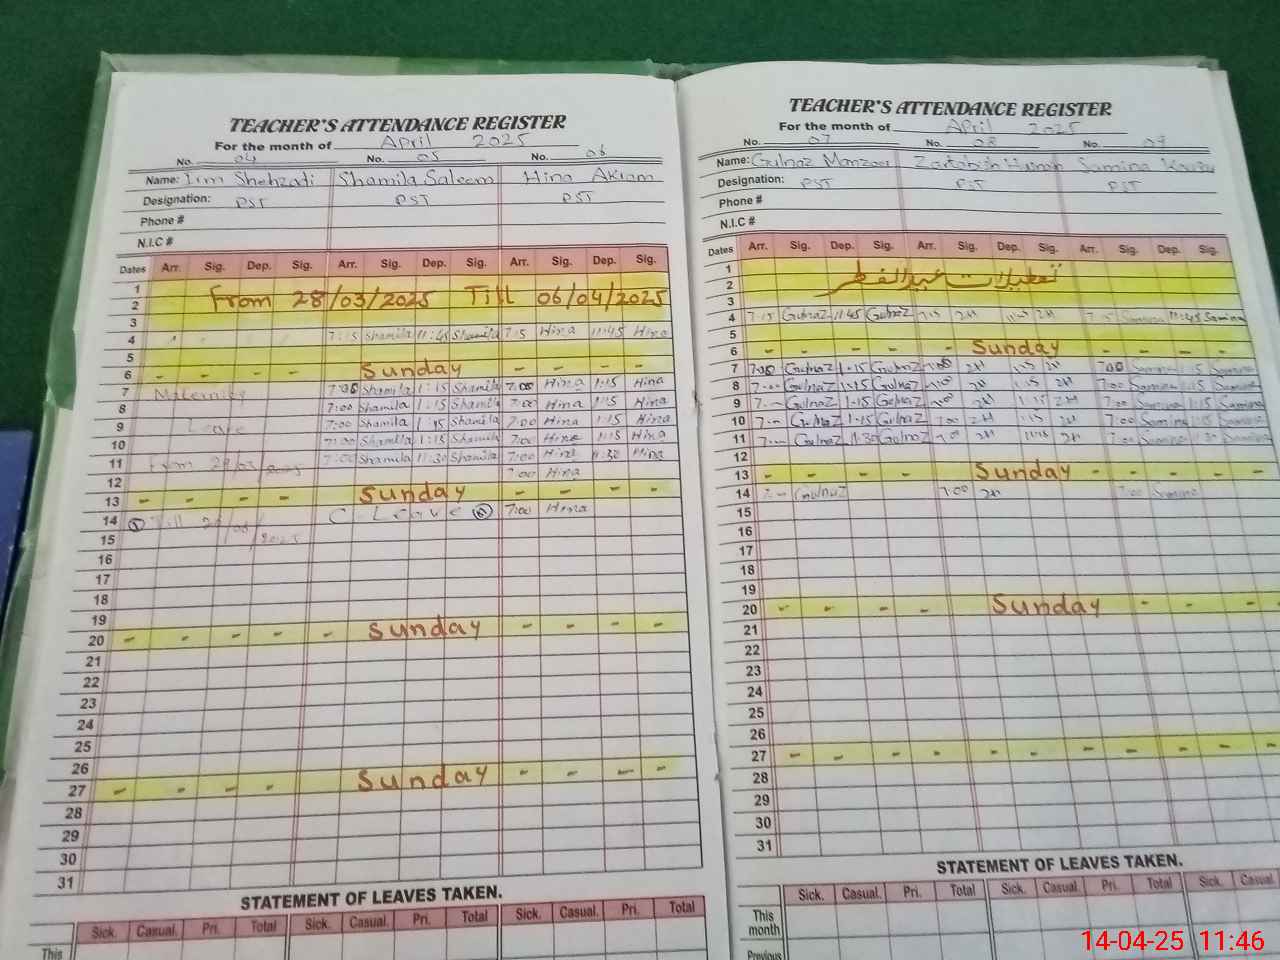 TEACHER'S ATTENDANCE REGISTER
For the month of April 2025
No. 04 No. 05 No. 06
Name: Irm Shehzadi Shamila Saleem Hina Akram
Designation: PST PST PST
Phone #
N.I.C #
Dates Arr. Sig. Dep. Sig. Arr. Sig. Dep. Sig. Arr. Sig. Dep. Sig.
1
2 From 28/03/2025 Till 06/04/2025
3
4 7:15 Shamila 11:45 Shamila 7:15 Hina 11:45 Hina
5
6 - - - - Sunday - - - -
7 Maternity 7:00 Shamila 1:15 Shamila 7:00 Hina 1:15 Hina
8 7:00 Shamila 1:15 Shamila 7:00 Hina 1:15 Hina
9 Leave 7:00 Shamila 1:15 Shamila 7:00 Hina 1:15 Hina
10 7:00 Shamila 1:15 Shamila 7:00 Hina 1:15 Hina
11 From 7:00 Shamila 11:30 Shamila 7:00 Hina 11:30 Hina
12 7:00 Hina
13 - - - - Sunday - - - -
14 Till C. Leave 7:00 Hina
15 2025
16
17
18
19
20 - - - - - Sunday - - - -
21
22
23
24
25
26
27 - - - - Sunday - - - -
28
29
30
31
STATEMENT OF LEAVES TAKEN.
Sick. Casual. Pri. Total Sick. Casual. Pri. Total Sick. Casual. Pri. Total
This
TEACHER'S ATTENDANCE REGISTER
For the month of April 2025
No. 07 No. 08 No. 09
Name: Gulnaz Manzoor Samina
Designation: PST PST PST
Phone #
N.I.C #
Dates Arr. Sig. Dep. Sig. Arr. Sig. Dep. Sig. Arr. Sig. Dep. Sig.
1
2 تعطیلات عیدالفطر
3
4 7:15 Gulnaz 11:45 Gulnaz 7:15 Samina 11:45 Samina
5
6 - - - - - Sunday - - - -
7 7:00 Gulnaz 1:15 Gulnaz 7:00 Samina 1:15 Samina
8 7:00 Gulnaz 1:15 Gulnaz 7:00 Samina 1:15 Samina
9 Gulnaz 1:15 Gulnaz 7:00 Samina 1:15 Samina
10 Gulnaz 1:15 Gulnaz 7:00 1:15 7:00 Samina 1:15 Samina
11 Gulnaz 11:30 Gulnaz 7:00 Samina Samina
12
13 - - - - - Sunday - - - -
14 Gulnaz 7:00 7:00 Samina
15
16
17
18
19
20 - - - - Sunday - - -
21
22
23
24
25
26
27 - - - - - - - - - - - -
28
29
30
31
STATEMENT OF LEAVES TAKEN.
Sick. Casual. Pri. Total Sick. Casual. Pri. Total Sick. Casual.
This
month
Previous
14-04-25 11:46